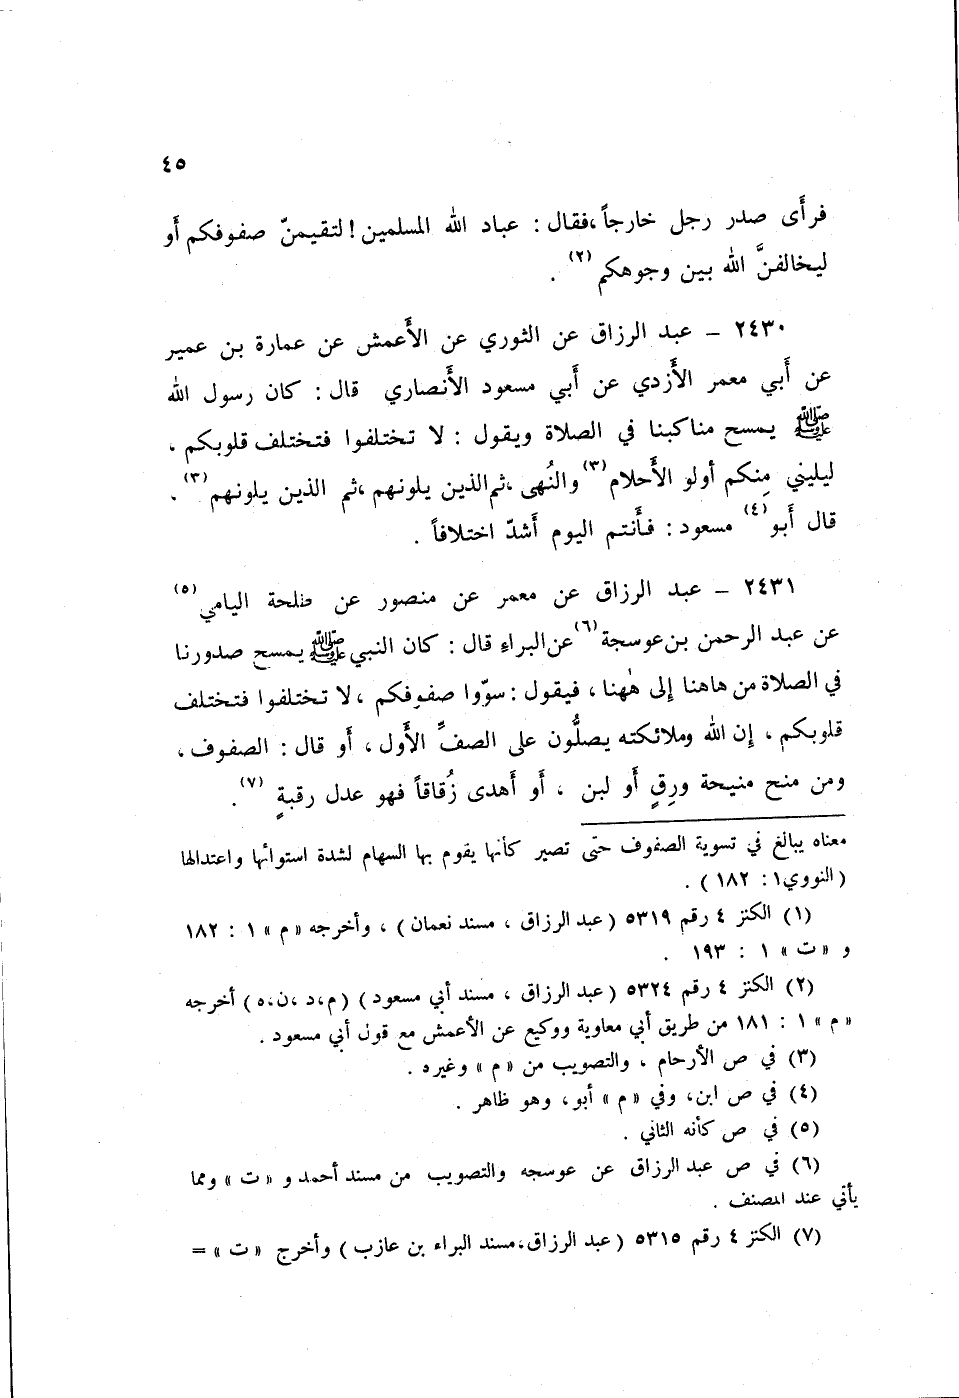 ٤٥
فرأَى صدر رجل خارجاً، فقال : عباد الله المسلمين ! لتقيمنّ صفوفكم أَو
ليخالفنَّ الله بين وجوهكم (٢) .
٢٤٣٠ – عبد الرزاق عن الثوري عن الأَعمش عن عمارة بن عمير
عن أَبي معمر الأَزدي عن أَبي مسعود الأَنصاري قال : كان رسول الله
ﷺ يمسح مناكبنا في الصلاة ويقول : لا تختلفوا فتختلف قلوبكم ،
ليليني مِنكم أولو الأَحلام (٣) والنُهى ، ثم الذين يلونهم ، ثم الذين يلونهم (٣) .
قال أَبو (٤) مسعود : فأَنتم اليوم أَشدّ اختلافاً .
٢٤٣١ – عبد الرزاق عن معمر عن منصور عن طلحة اليامي (٥)
عن عبد الرحمن بن عوسجة (٦) عن البراءِ قال : كان النبي ﷺ يمسح صدورنا
في الصلاة من هاهنا إلى هٰهنا ، فيقول : سوّوا صفوفكم ، لا تختلفوا فتختلف
قلوبكم ، إن الله وملائكته يصلُّون على الصفِّ الأَول ، أَو قال : الصفوف ،
ومن منح منيحة ورِقٍ أَو لبن ، أَو أَهدى زُقاقاً فهو عدل رقبةٍ (٧) .
معناه يبالغ في تسوية الصفوف حتى تصير كأنها يقوم بها السهام لشدة استوائها واعتدالها
( النووي ١ : ١٨٢ ) .
(١) الكنز ٤ رقم ٥٣١٩ ( عبد الرزاق ، مسند نعمان ) ، وأخرجه « م » ١ : ١٨٢
و « ت » ١ : ١٩٣ .
(٢) الكنز ٤ رقم ٥٣٢٤ ( عبد الرزاق ، مسند أبي مسعود ) ( م، د ، ن، ه ) أخرجه
« م » ١ : ١٨١ من طريق أبي معاوية ووكيع عن الأعمش مع قول أبي مسعود .
(٣) في ص الأرحام ، والتصويب من « م » وغيره .
(٤) في ص ابن، وفي « م » أبو ، وهو ظاهر .
(٥) في ص كأنه الثاني .
(٦) في ص عبد الرزاق عن عوسجه والتصويب من مسند أحمد و « ت » ومما
يأتي عند المصنف .
(٧) الكنز ٤ رقم ٥٣١٥ ( عبد الرزاق، مسند البراء بن عازب ) وأخرج « ت » =